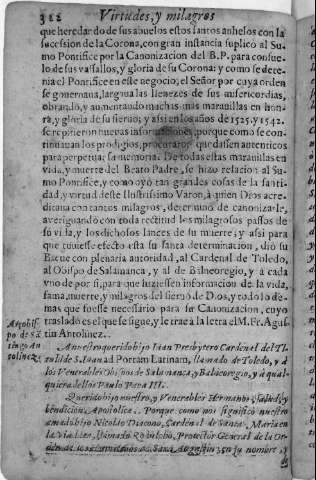 322 Virtudes, y milagros
que heredaron de sus abuelos estos santos anhelos con la
sucession de la Corona, con gran instancia suplicò al Su-
mo Pontifice por la Canonizacion del B. P. para consue-
lo de sus vassallos, y gloria de su Corona: y como se dete-
nia el Pontifice en este negocio; el Señor por cuya orden
se governaua, larguaua las llenezes de sus misericordias,
obrando, y aumentando muchas mas marauillas en hon-
ra, y gloria de su sieruo; y assi en los años de 1525. y 1542.
se repitieron nuevas informaciones, porque como se con-
tinuauan los prodigios, procuraron quedassen autenticos
para perpetua su memoria. De todas estas marauillas en
vida, y muerte del Beato Padre, se hizo relacion al Su-
mo Pontifice, y como oyò tan grandes cosas de la santi-
dad, y virtud deste Ilustrissimo Varon, à quien Dios acre-
ditaua con tantos milagros, determinò de canonizarle,
averiguando con toda rectitud los milagrosos passos de
su vida, y los dichosos lances de su muerte; y assi para
que tuuiesse efecto esta su santa determinacion, diò su
Bula con plenaria autoridad, al Cardenal de Toledo,
al Obispo de Salamanca, y al de Balneoregio, y à cada
vno de por si, para que hiziessen informacion de la vida,
fama, muerte, y milagros del sieruo de Dios, y todo lo de-
mas que fuesse necessario para su Canonizacion, cuyo
traslado es el que se sigue, y le trae à la letra el M. Fr. Agus-
tin Antolinez.
Arçobis-
po de Sã-
tiago An-
tolinez.
A nuestro querido hijo Iuan Presbytero Cardenal del Ti-
tulo de S. Iuan ad Portam Latinam, llamado de Toledo, y à
los Venerables Obispos de Salamanca, y Balneoregio, y à qual-
quiera dellos Paulo Papa III.
Querido hijo nuestro, y Venerables Hermanos salud, y
bendicion Apostolica. Porque como nos significò nuestro
amado hijo Nicolao Diacono, Cardenal de Santa Maria en
la Via Lata, llamado Rodulpho, Protector General de la Or-
den de los Ermitaños de San Augustin, en su nombre, y